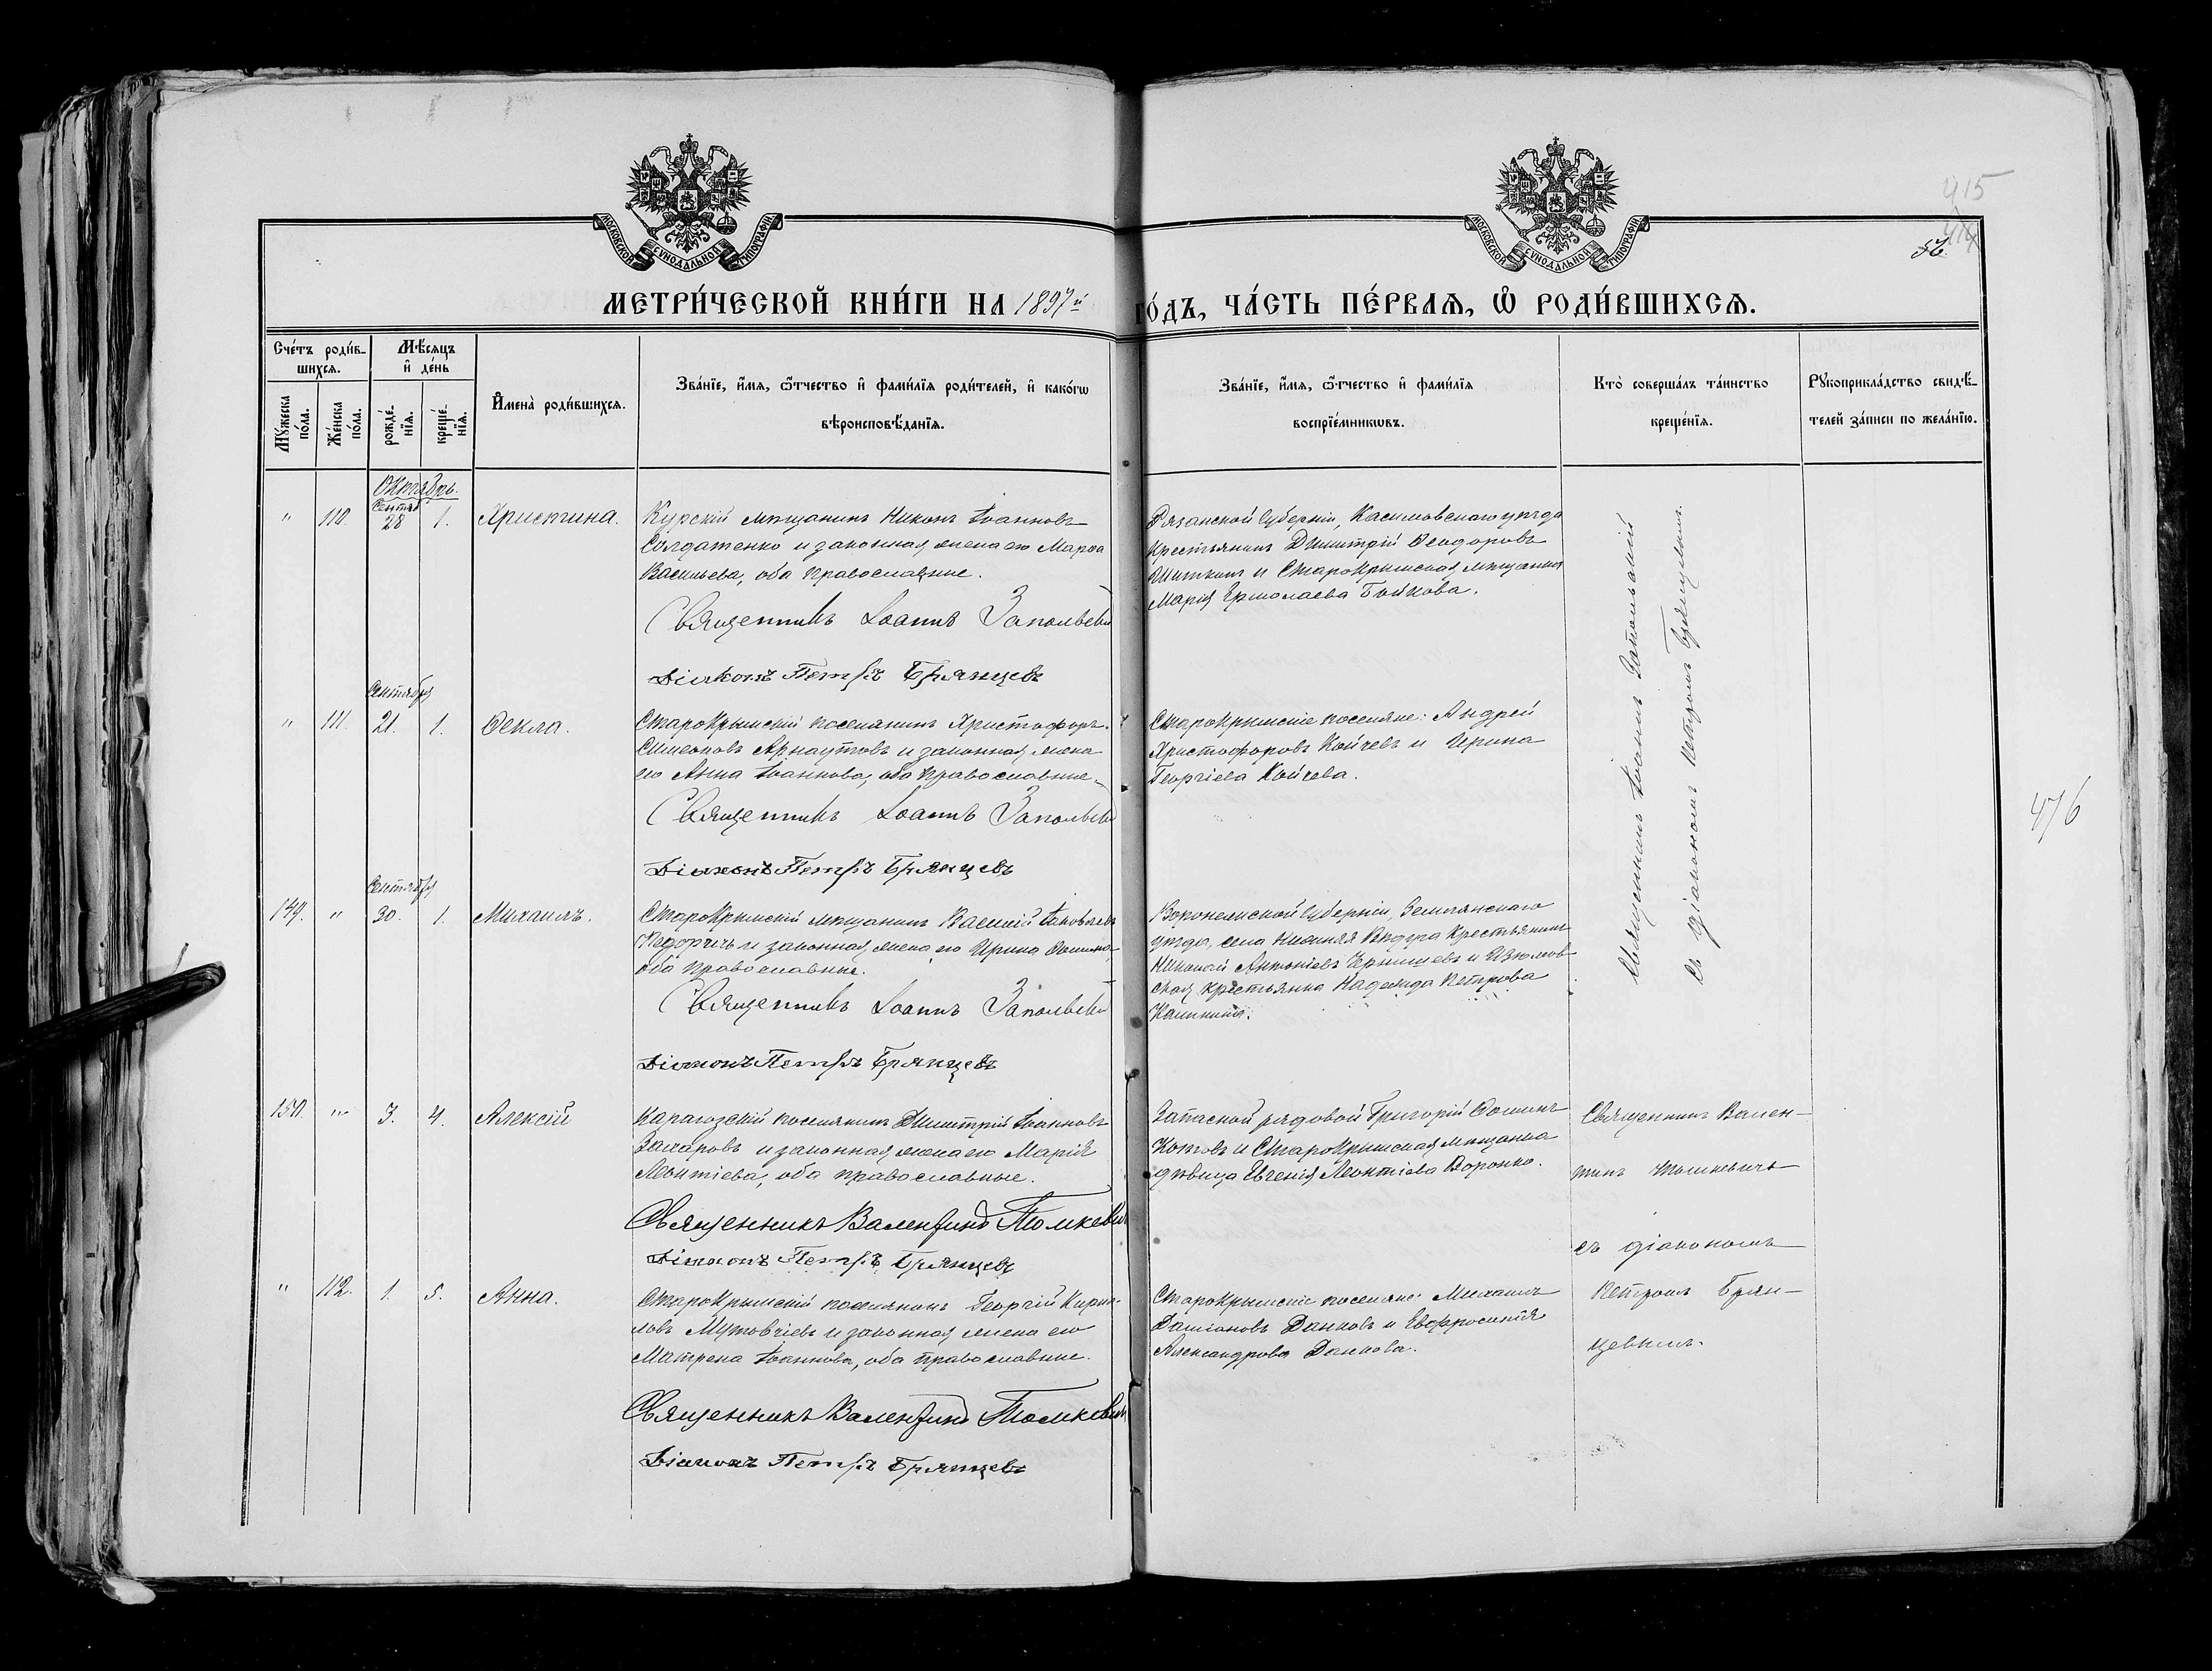 415
414
56.
МОСКОВСКОЙ СѴНОДАЛЬНОЙ ТИПОГРАФІИ
МОСКОВСКОЙ СѴНОДАЛЬНОЙ ТИПОГРАФІИ
МЕТРИ́ЧЕСКОЙ КНИ́ГИ НА 1897й ГО́ДЪ, ЧА́СТЬ ПЕ́РВАѦ, Ѡ҆ РОДИ́ВШИХСѦ.
Сче́тъ роди́в-
шихсѧ.
Мꙋ́жеска по́ла.
Же́нска по́ла.
Мѣ́сѧцъ
и҆ де́нь
рожде́-нїѧ.
креще́-нїѧ.
И҆мена̀ роди́вшихсѧ.
Зва́нїе, и҆́мѧ, ѻ҆́тчество и҆ фами́лїѧ роди́телей, и҆ како́гѡ
вѣроисповѣ́данїѧ.
Зва́нїе, и҆́мѧ, ѻ҆́тчество и҆ фами́лїѧ
воспрїе́мникѡвъ.
Кто̀ соверша́лъ та́инство
креще́нїѧ.
Рꙋкоприкла́дство свидѣ́-
телей за́писи по жела́нїю.
Октябрь.
Сентяб
" 110. 28 1. Христина.
Курскій мѣщанинъ Никонъ Іоанновъ
Солдатенко и законная жена его Марѳа
Васильева, оба православные.
Священникъ Іоаннъ Запольскій
Діаконъ Петръ Брянцевъ
Рязанской губерніи, Касимовскаго уѣзда
крестьянинъ Димитрій Ѳеодоровъ
Шиткин и Старокрымская мѣщанка
Марія Ермолаева Бойкова.
Священникъ Іоаннъ Запольскій
съ діакономъ Петромъ Брянцевымъ.
Сентября
" 111. 21. 1. Ѳекла.
Старокрымскій поселянинъ Христофоръ
Симеоновъ Арнаутовъ и законная жена
его Анна Іоаннова, оба православные.
Священникъ Іоаннъ Запольскій
Діаконъ Петръ Брянцевъ
Старокрымскіе поселяне: Андрей
Христофоровъ Койчевъ и Ирина
Георгіева Койчева.
476
Сентября
149. " 30. 1. Михаилъ.
Старокрымскій мѣщанинъ Василій Іаковлевъ
и законная жена его Ирина
оба православные.
Священникъ Іоаннъ Запольскій
Діаконъ Петръ Брянцевъ
Воронежской губерніи, Землянскаго
уѣзда, села Нижняя Ведуга крестьянинъ
Николай Антоніевъ Чернышевъ и Изюмов-
ская крестьянка Надежда Петрова
Калинина.
150. " 3. 4. Алексій
Карагозскій поселянинъ Димитрій Іоанновъ
Захаровъ и законная жена его Марія
Леонтіева, оба православные.
Священникъ Валентинъ Томкевичъ
Діаконъ Петръ Брянцевъ
Запасной рядовой Григорій Ѳоминъ
Котовъ и Старокрымская мѣщанка
дѣвица Евгенія Леонтіева Воронко.
Священникъ Вален-
тинъ Томкевичъ
съ діакономъ
Петромъ Брян-
цевымъ.
" 112. 1. 5. Анна.
Старокрымскій поселянинъ Георгій Кирил-
ловъ Мутовчіевъ и законная жена его
Матрена Іоаннова, оба православные.
Священникъ Валентинъ Томкевичъ
Діаконъ Петръ Брянцевъ
Старокрымскіе поселяне: Михаилъ
Даміановъ Данковъ и Евфросинія
Александрова Данкова.